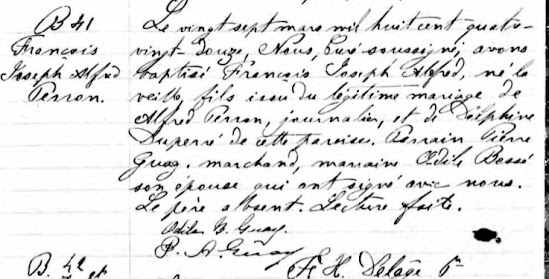 B 41
François
Joseph Alfred
Perron.
Le vingt sept mars mil huit cent quatre-
vingt-douze, Nous, Curé soussigné, avons
baptisé François Joseph Alfred, né la
veille, fils issu du légitime mariage de
Alfred Perron, journalier, et de Delphine
Duperré de cette paroisse. Parrain Pierre
Guay, marchand, marraine Odile Bossé
son épouse qui ont signé avec nous.
Le père absent. Lecture faite.
Odile B. Guay
P. A. Guay
F. H. Delâge Ptr
B. 42